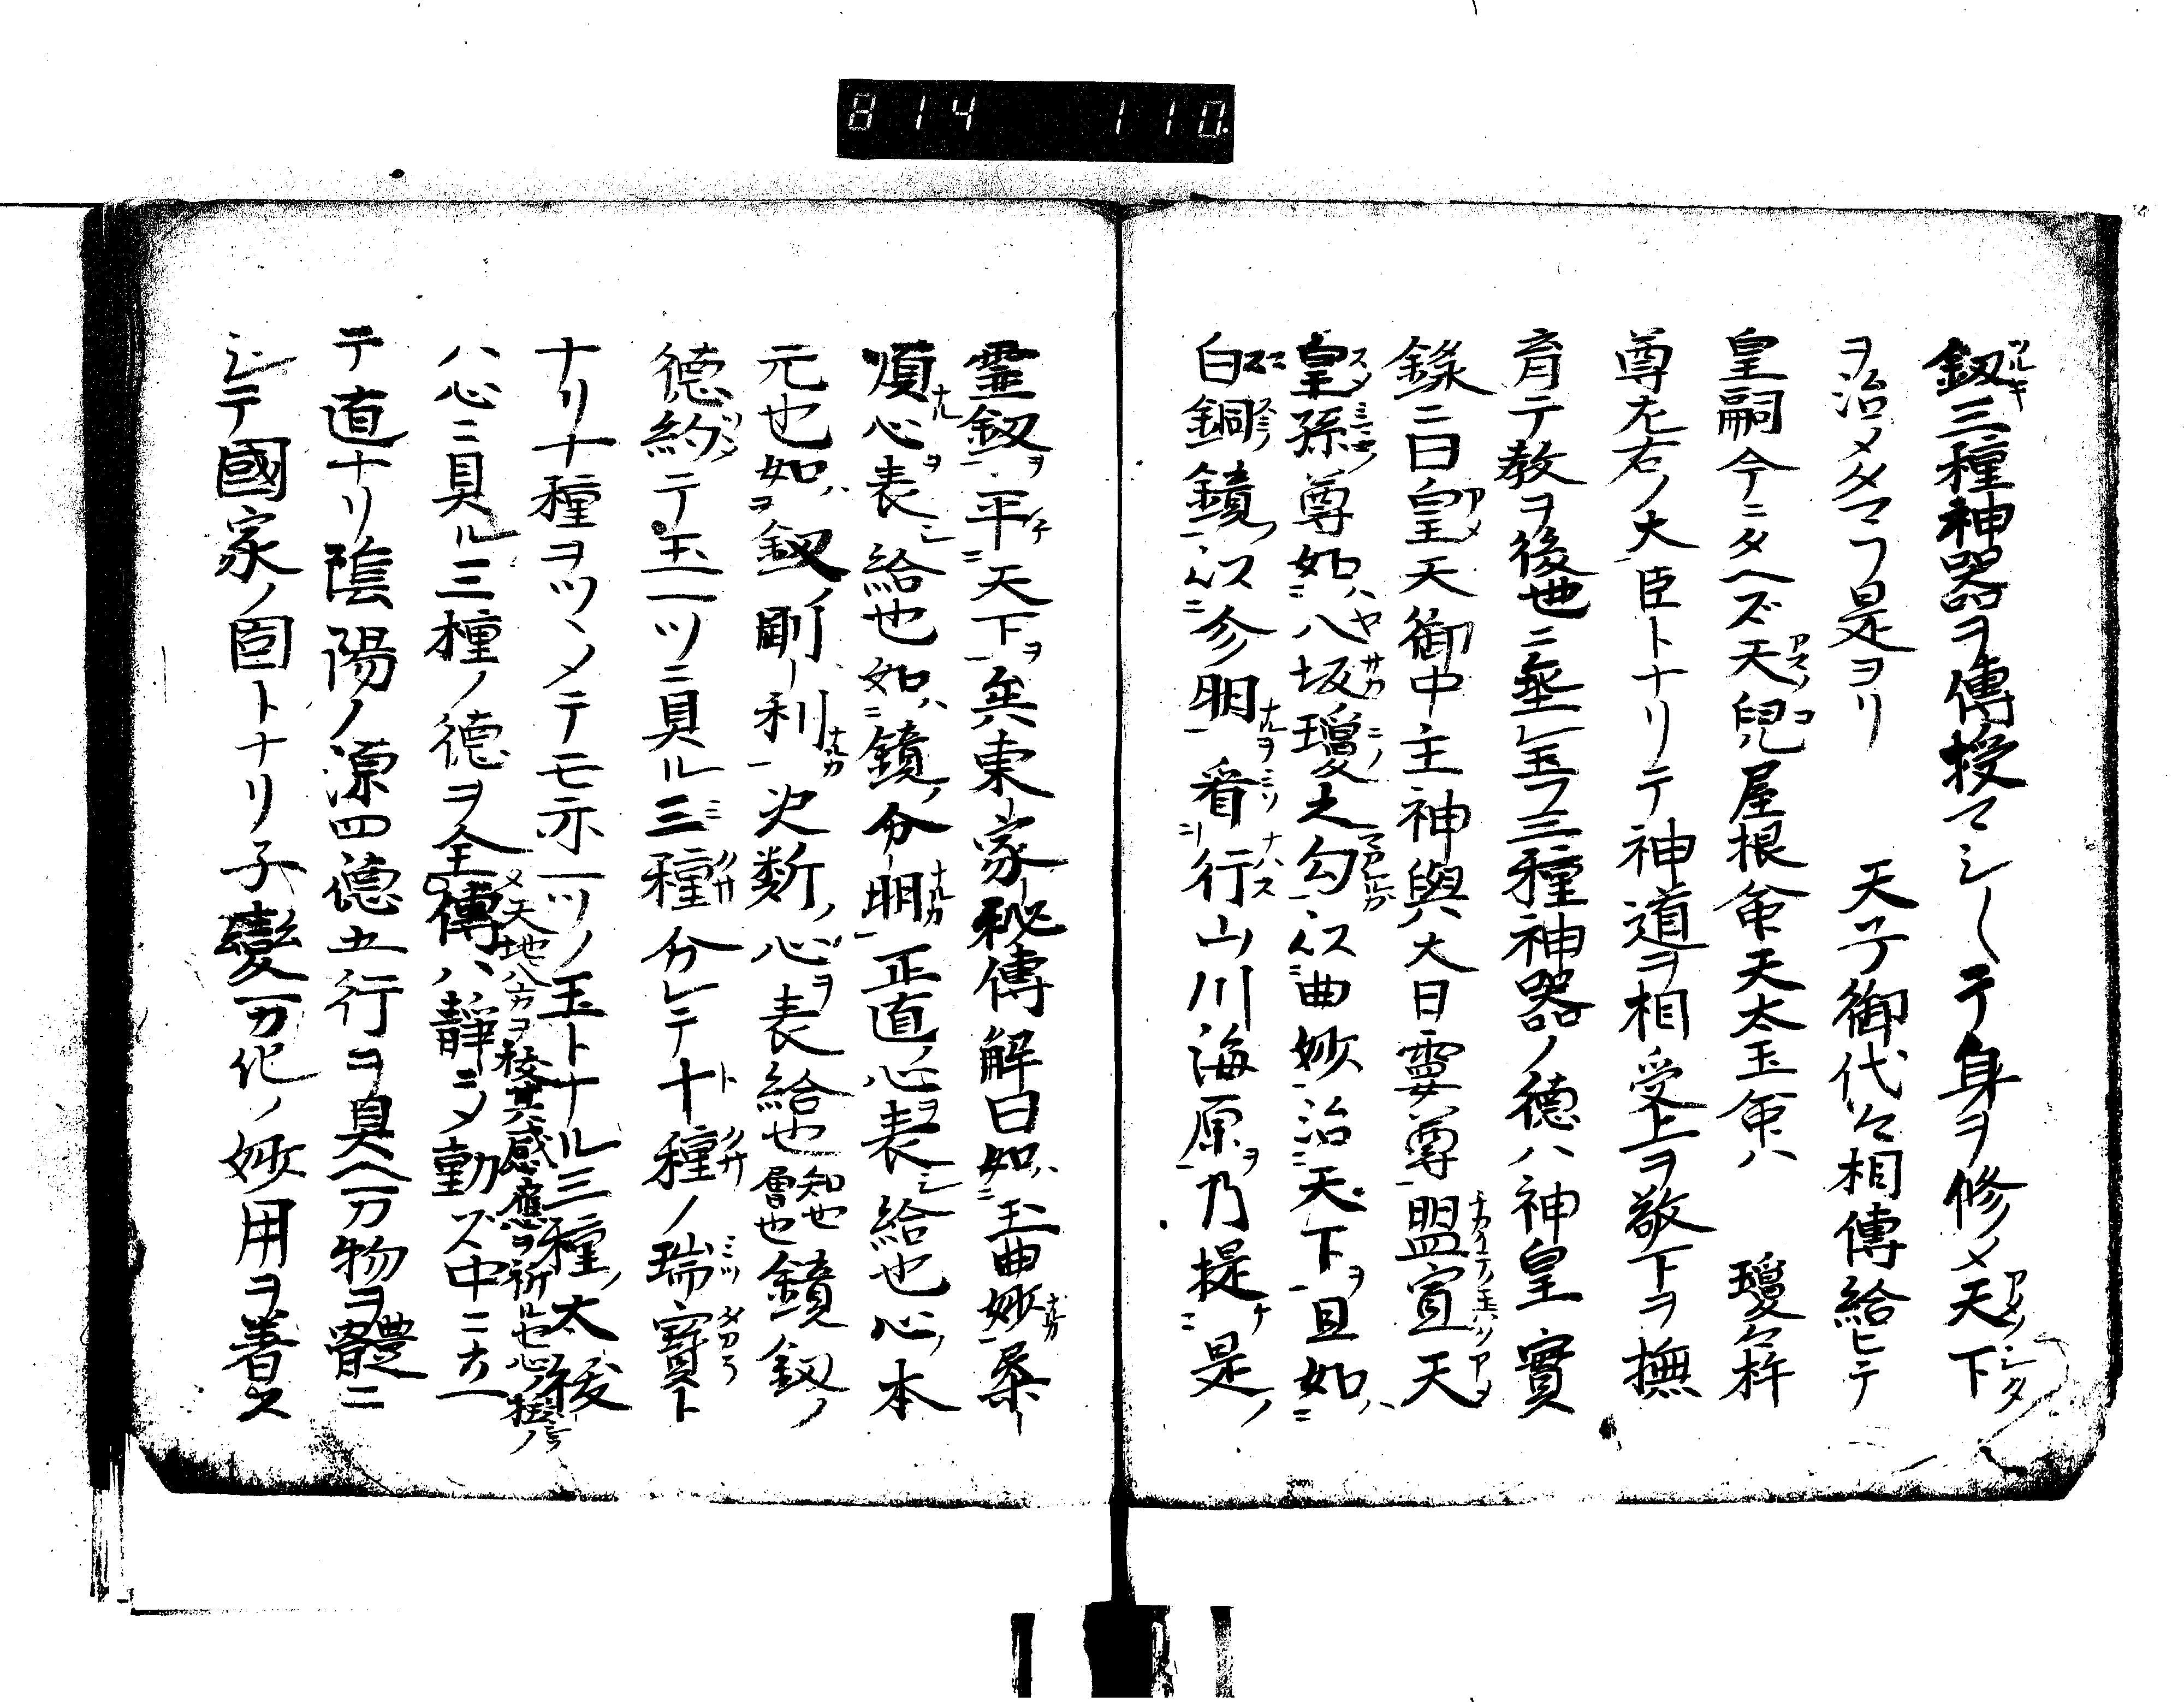 814 110
釼三種神器ヲ傳授マシ〱テ身ヲ修メ天下
ヲ治メタマフ是ヲリ 天子御代々相傳給ヒテ
皇嗣今ニタヘズ天兒屋根命天太玉命ハ 瓊々杵
尊左右ノ大臣トナリテ神道ヲ相受上ヲ敬下ヲ撫
育テ教ヲ後世ニ垂レ玉フ三種神器ノ德ハ神皇實
錄ニ曰皇天御中主神與大日孁尊盟宣天
皇孫尊如八坂瓊之勾以曲妙治天下且如
白銅鏡以分明看行山川海原乃提是
霊釼平天下矣東家秘傳解曰如玉曲妙柔
順心表シ給也如鏡分明正直心ヲ表シ給也心本
元也如釼剛利决断心ヲ表給也知也層也鏡釼ノ
德約テ玉一ツニ具ル三種分レテ十種ノ瑞寶ト
ナリ十種ヲツヽメテモ亦一ツノ玉トナル三種ノ大祓
又天地八方ヲ拔其感應ヲ祈ル也心ノ
ハ心ニ具ル三種ノ德ヲ全傳ハ靜ニメ動ズ中ニ一
テ直ナリ陰陽ノ源四德五行ヲ具ヘ万物ヲ體ニ
シテ國家ノ固トナリ子變万化ノ妙用ヲ著ス